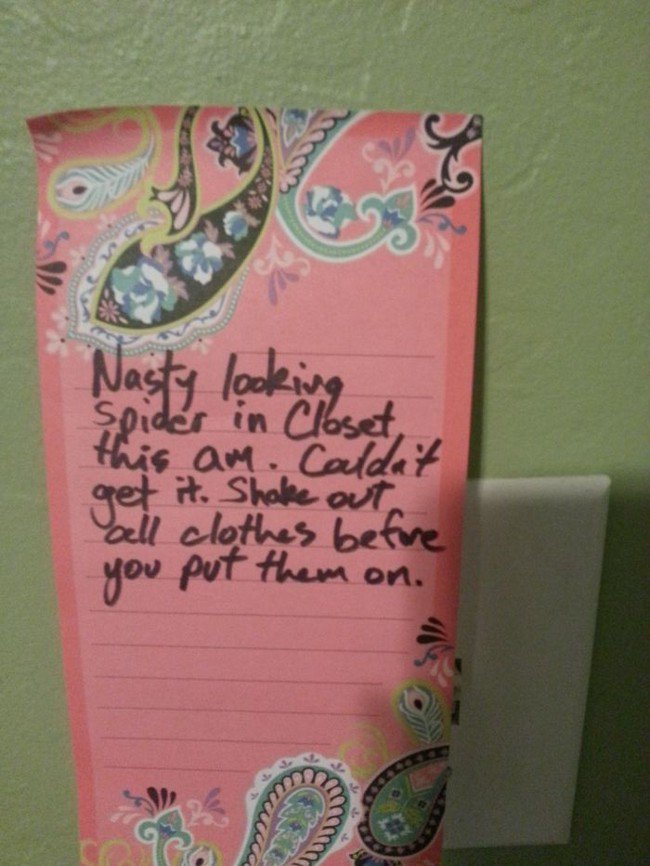 Nasty looking
Spider in Closet
this am. Couldn't
get it. Shake out
all clothes before
you put them on.